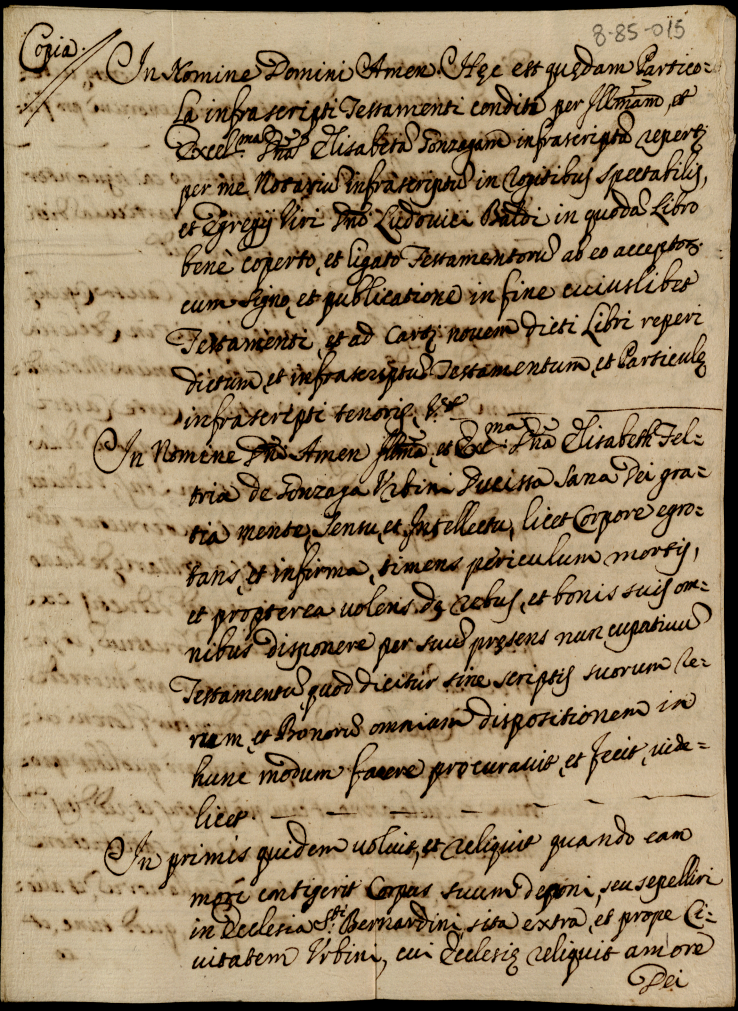 8-85-015
Copia.
In Nomine Domini Amen. Hęc est quędam Partico=
la infrascripti Testamenti condità per Illmam, et
Excel.ma Dnā Elisabetā Gonzagam infrascriptā repertȩ
per me Notariū infrascriptū in rogitibus spectabilis,
et Egregij Viri Dnī Ludovici Baldi in quodā Libro
benè coperto, et ligato Testamentorū ab eo acceptor;
cum signo, et publicatione in fine cuiuslibet
Testamenti, et ad Cartȩ novem dicti Libri reperi
dictum, et infrascriptū Testamentum, et Particulȩ
infrascripti tenoris, Vzt
In Nomine Dnī Amen Illmā, et Exc.ma Dnā Elisabeth Fel=
tria de Gonzaga Urbini Ducissa Sana Dei gra=
tia mente, Sensu, et Intellectu, licet Corpore egro=
tans, et infirma, timens periculum mortis,
et propterea volens de rebus, et bonis suis om=
nibus disponere per suū pręsens nuncupativū
Testamentū, quod dicitur sine scriptis suorum re=
rum, et Bonorū omnium dispositionem in
hunc modum facere procuravit, et fecit, vide=
licet.
In primis quidem voluit, et reliquit quando eam
mori contigerit Corpus suum deponi, seu sepelliri
in Ecclesia S.ti Bernardini sita extra, et prope Ci=
vitatem Urbini, cui Ecclesię reliquit amore
Dei